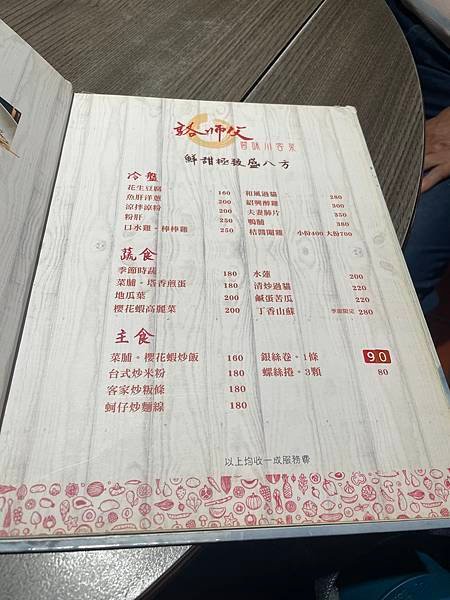 師父
鮮甜極致盛八方
冷盤
花生豆腐 160
魚肝洋蔥 200
涼拌涼粉 200
粉肝 250
口水雞。棒棒雞 250
和風過貓 280
紹興醉雞 300
夫妻肺片 350
鴨脯 380
桔醬閹雞 小份400 大份700
蔬食
季節時蔬 180
菜脯。塔香煎蛋 180
地瓜葉 200
櫻花蝦高麗菜 200
水蓮 200
清炒過貓 220
鹹蛋苦瓜 220
丁香山蘇 季節限定 280
主食
菜脯。櫻花蝦炒飯 160
台式炒米粉 180
客家炒粄條 180
蚵仔炒麵線 180
銀絲卷。1條 90
螺絲捲。3顆 80
以上均收一成服務費